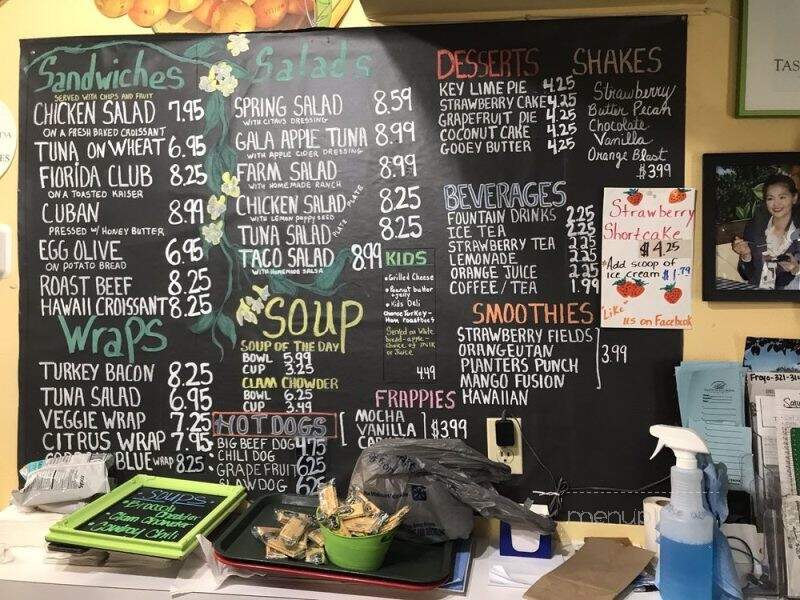 Sandwiches
SERVED WITH CHIPS AND FRUIT
CHICKEN SALAD 7.95
ON A FRESH BAKED CROISSANT
TUNA ON WHEAT 6.95
FLORIDA CLUB 8.25
ON A TOASTED KAISER
CUBAN 8.99
PRESSED W/ HONEY BUTTER
EGG OLIVE 6.95
ON POTATO BREAD
ROAST BEEF 8.25
HAWAII CROISSANT 8.25
Wraps
TURKEY BACON 8.25
TUNA SALAD 6.95
VEGGIE WRAP 7.25
CITRUS WRAP 7.95
BLUE WRAP 8.25
Salads
SPRING SALAD 8.59
WITH CITRUS DRESSING
GALA APPLE TUNA 8.99
WITH APPLE CIDER DRESSING
FARM SALAD 8.99
WITH HOMEMADE RANCH
CHICKEN SALAD PLATE 8.25
WITH LEMON POPPY SEED
TUNA SALAD PLATE 8.25
TACO SALAD 8.99
WITH HOMEMADE SALSA
SOUP
SOUP OF THE DAY
BOWL 5.99
CUP 3.25
CLAM CHOWDER
BOWL 6.25
CUP 3.49
HOT DOGS
BIG BEEF DOG 4.75
CHILI DOG
GRAPEFRUIT 6.25
SLAW DOG
KIDS
Grilled Cheese
Peanut butter + jelly
Kids Deli
Choose Turkey - Ham roast beef
Served on white
bread - apple -
choice of milk
or juice
4.49
FRAPPIES
MOCHA
VANILLA $3.99
DESSERTS
KEY LIME PIE 4.25
STRAWBERRY CAKE 4.25
GRAPEFRUIT PIE 4.25
COCONUT CAKE 4.25
GOOEY BUTTER 4.25
SHAKES
Strawberry
Butter Pecan
Chocolate
Vanilla
Orange Blast
$3.99
BEVERAGES
FOUNTAIN DRINKS 2.25
ICE TEA 2.25
STRAWBERRY TEA 2.25
LEMONADE 2.25
ORANGE JUICE 2.25
COFFEE / TEA 1.99
SMOOTHIES
STRAWBERRY FIELDS
ORANGEUTAN
PLANTERS PUNCH 3.99
MANGO FUSION
HAWAIIAN
Strawberry
Shortcake
$4.25
Add scoop of
ice cream $1.79
"Like"
us on Facebook
TAS
SOUPS
Broccoli Cheddar
Clam Chowder
Cowboy Chili
menup